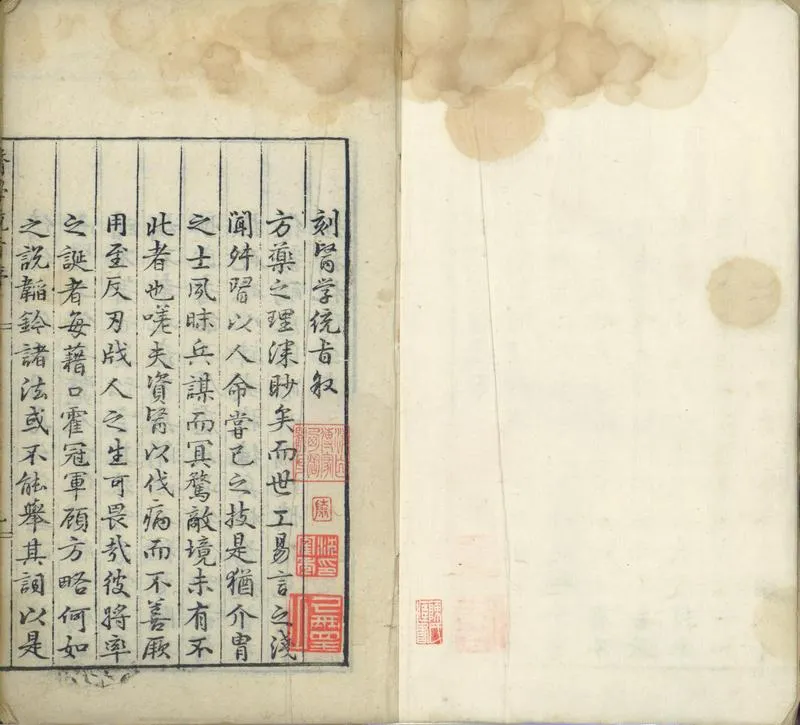 刻醫学統旨叙
方藥之理深眇矣而世工易言之淺
聞舛習以人命嘗己之技是猶介冑
之士夙昧兵謀而冥騖敵境未有不
北者也嗟夫資醫以伐病而不善厥
用至反刃戕人之生可畏哉彼將率
之誕者每藉口霍冠軍顧方略何如
之說韜鈐諸法或不能舉其詞以是